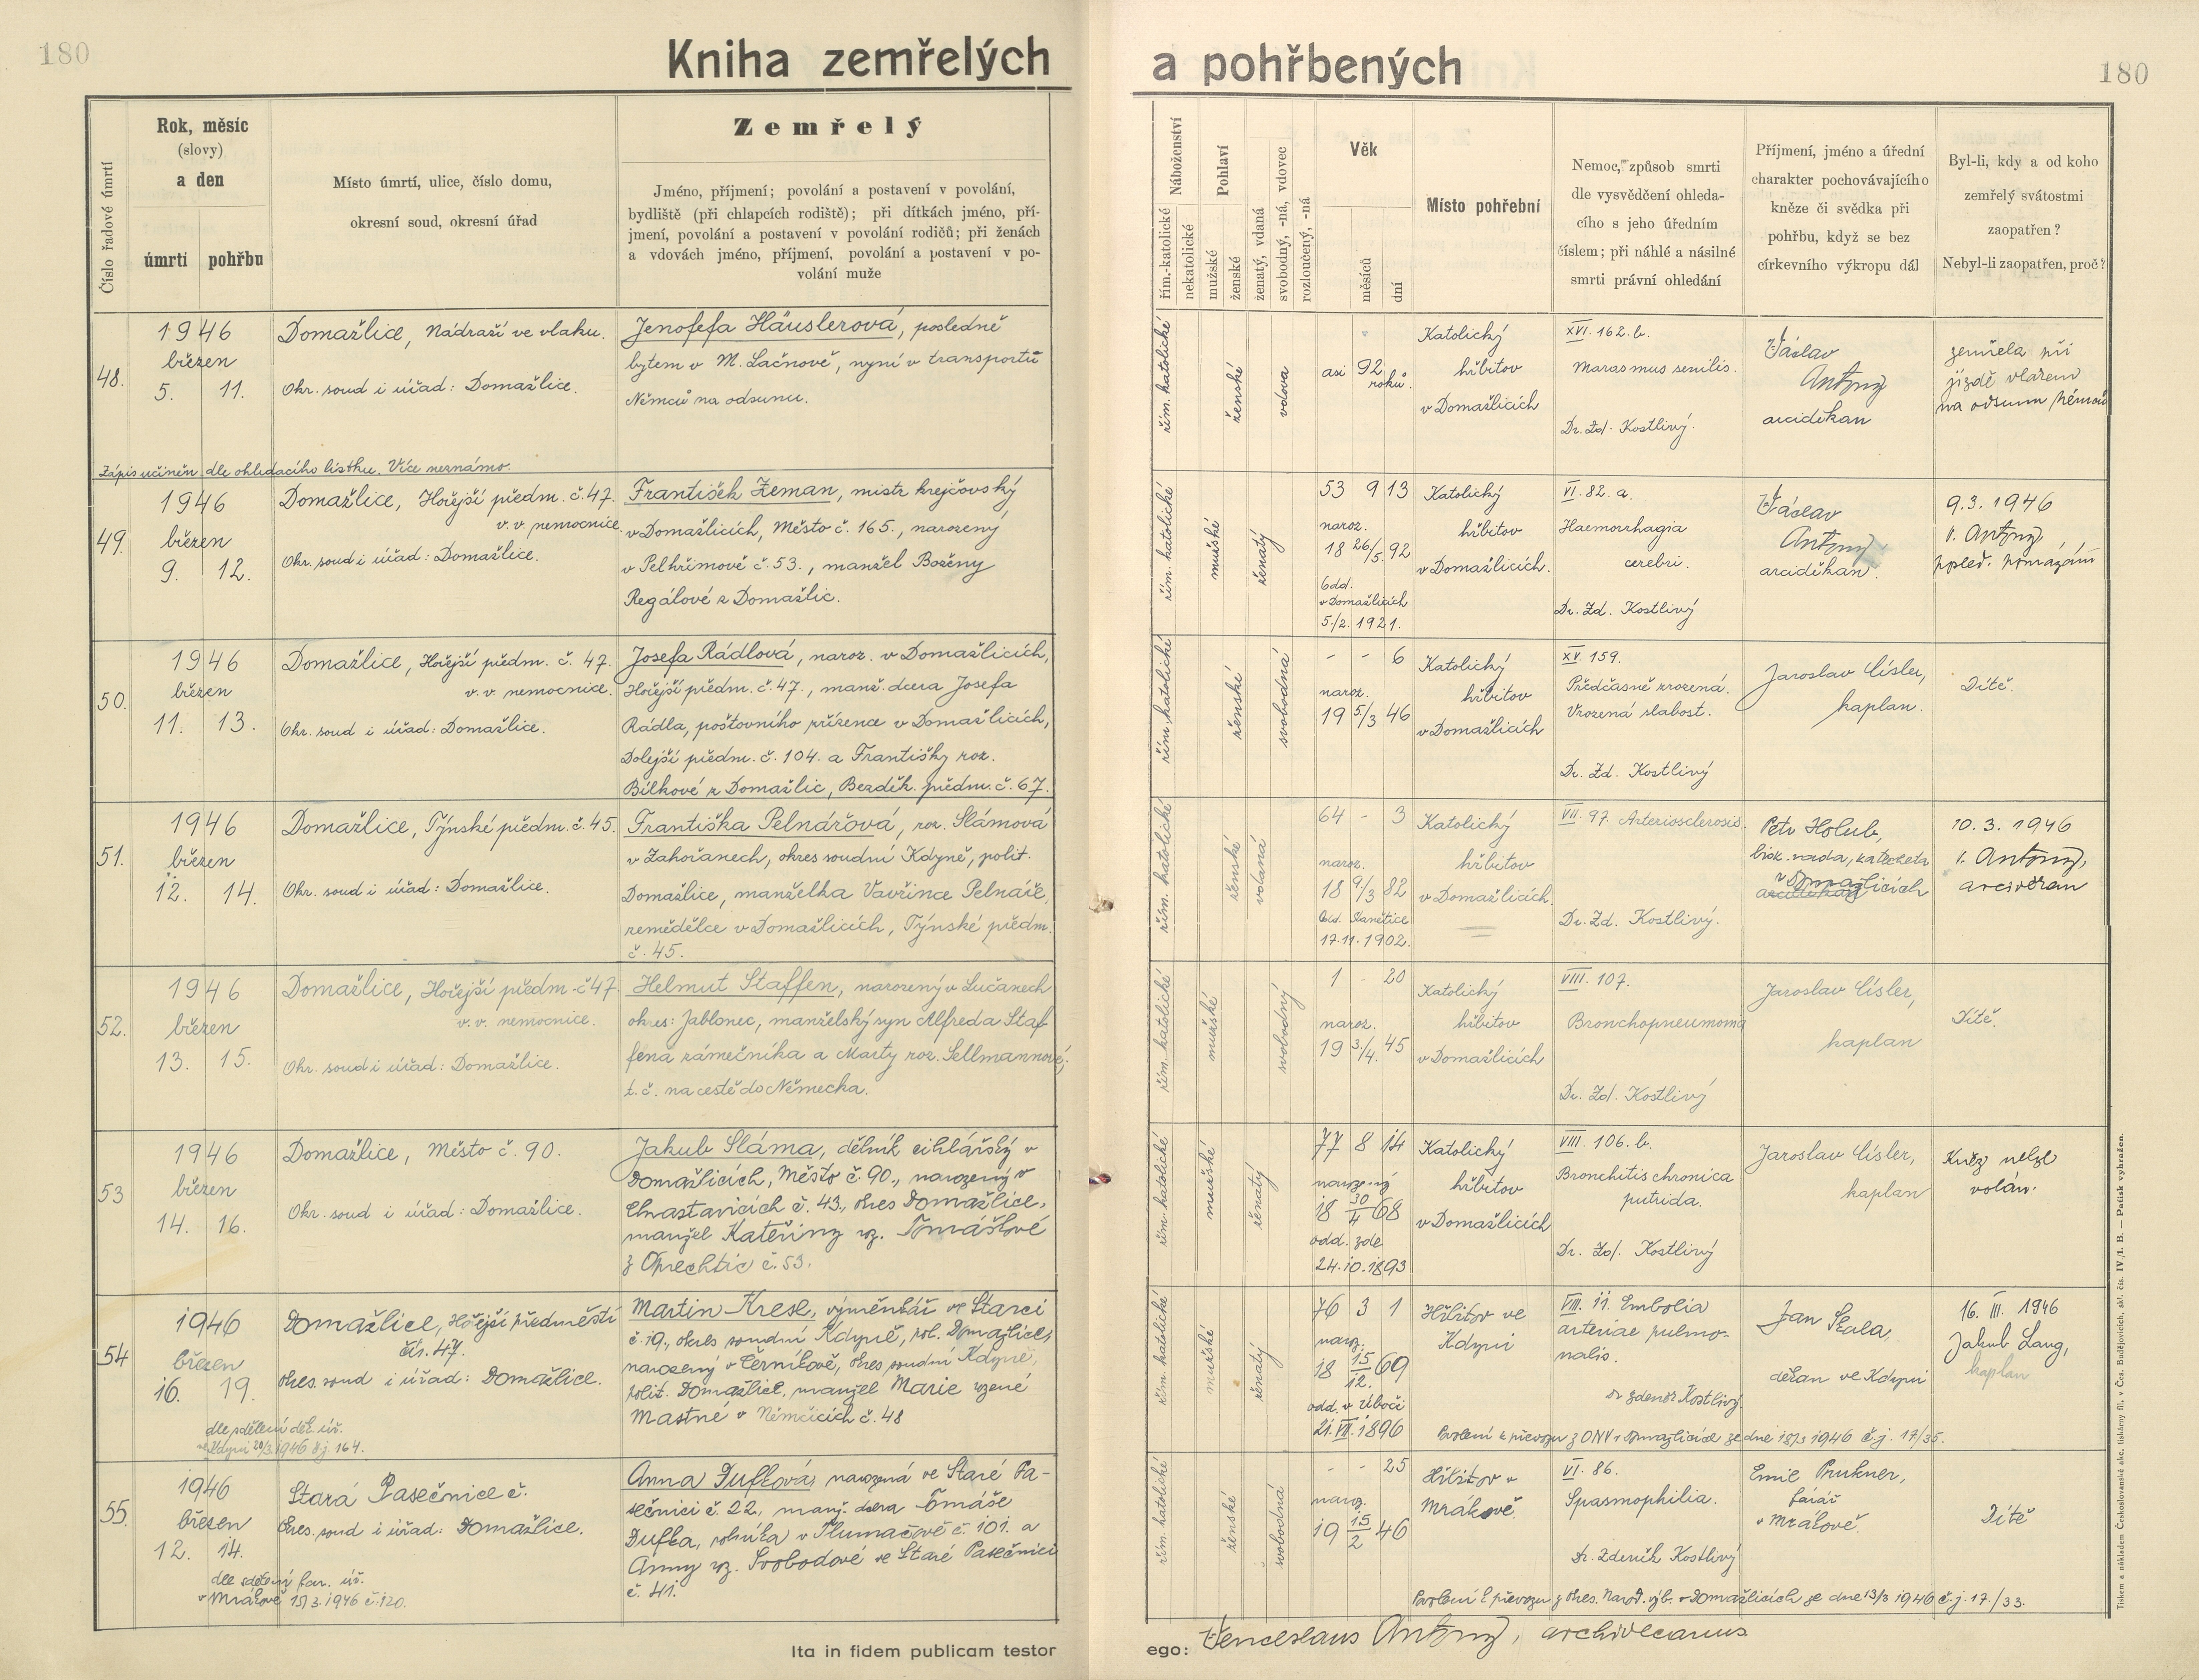 180
Kniha zemřelých a pohřbených
180
Číslo řadové úmrtí
Rok, měsíc
(slovy)
a den
úmrtí
pohřbu
Místo úmrtí, ulice, číslo domu,
okresní soud, okresní úřad
Zemřelý
Jméno, příjmení; povolání a postavení v povolání,
bydliště (při chlapcích rodiště); při dítkách jméno, pří-
jmení, povolání a postavení v povolání rodičů; při ženách
a vdovách jméno, příjmení, povolání a postavení v po-
volání muže
Náboženství
řím.-katolické
nekatolické
Pohlaví
mužské
ženské
ženatý, vdaná
svobodný, -ná, vdovec
rozloučený, -ná
Věk
měsíců
dní
Místo pohřební
Nemoc, způsob smrti
dle vysvědčení ohleda-
cího s jeho úředním
číslem; při náhlé a násilné
smrti právní ohledání
Příjmení, jméno a úřední
charakter pochovávajícího
kněze či svědka při
pohřbu, když se bez
církevního výkropu dál
Byl-li, kdy a od koho
zemřelý svátostmi
zaopatřen?
Nebyl-li zaopatřen, proč?
48.
1946
březen
5. 11.
Domažlice, Nádraží ve vlaku.
Okr. soud i úřad: Domažlice.
Jenofefa Häuslerová, posledně
bytem v M. Lačnově, nyní v transportu
Němců na odsunu.
řím. katolické
ženské
vdova
asi 92
roků.
Katolický
hřbitov
v Domažlicích
XVI. 162. b.
Marasmus senilis.
Dr. Zd. Kostlivý.
Václav
Antony
arciděkan
zemřela při
jízdě vlakem
na odsun Němců
Zápis učiněn dle ohledacího lístku. Více neznámo.
49.
1946
březen
9. 12.
Domažlice, Hořejší předm. č. 47.
v. v. nemocnice
Okr. soud i úřad: Domažlice.
František Zeman, mistr krejčovský
v Domažlicích, Město č. 165., narozený
v Pelhřimově č. 53., manžel Boženy
Regálové z Domažlic.
řím. katolické
mužské
ženatý
53 9 13
naroz.
18 26/5. 92
Odd.
v Domažlicích
5./2. 1921.
Katolický
hřbitov
v Domažlicích.
VI. 82. a.
Haemorrhagia
cerebri.
Dr. Zd. Kostlivý
Václav
Antony
arciděkan.
9.3. 1946
V. Antony,
posled. pomazání
50.
1946
březen
11. 13.
Domažlice, Hořejší předm. č. 47.
v. v. nemocnice.
Okr. soud i úřad: Domažlice.
Josefa Rádlová, naroz. v Domažlicích,
Hořejší předm. č. 47., manž. dcera Josefa
Rádla, poštovního zřízence v Domažlicích,
Dolejší předm. č. 104. a Františky roz.
Bílkové z Domažlic, Bezděk. předm. č. 67.
řím. katolické
ženské
svobodná
- - 6
naroz.
19 5/3 46
Katolický
hřbitov
v Domažlicích
XV. 159.
Předčasně zrozená.
Vrozená slabost.
Dr. Zd. Kostlivý
Jaroslav Císler,
kaplan.
Dítě.
51.
1946
březen
12. 14.
Domažlice, Týnské předm. č. 45.
Okr. soud i úřad: Domažlice.
Františka Pelnářová, roz. Slámová
v Zahořanech, okres soudní Kdyně, polit.
Domažlice, manželka Vavřince Pelnáře,
zemědělce v Domažlicích, Týnské předm.
č. 45.
řím. katolické
ženské
vdaná
64 - 3
naroz.
18 9/3 82
Odd. Stanětice
17.11. 1902.
Katolický
hřbitov
v Domažlicích.
VII. 97. Arteriosclerosis.
Dr. Zd. Kostlivý.
Petr Holub,
bisk. rada, katecheta
v Domažlicích
10. 3. 1946
V. Antony,
arciděkan
52.
1946
březen
13. 15.
Domažlice, Hořejší předm. č 47.
v. v. nemocnice.
Okr. soud i úřad: Domažlice.
Helmut Staffen, narozený v Lučanech
okres: Jablonec, manželský syn Alfreda Staf
fena zámečníka a Marty roz. Sellmannové,
t. č. na cestě do Německa.
řím. katolické
mužské
svobodný
1 - 20
naroz.
19 3./4. 45
Katolický
hřbitov
v Domažlicích
VIII. 107.
Bronchopneumonia
Dr. Zd. Kostlivý
Jaroslav Císler,
kaplan
Dítě.
53
1946
březen
14. 16.
Domažlice, Město č. 90.
Okr. soud i úřad: Domažlice.
Jakub Sláma, dělník cihlářský v
Domažlicích, Město č. 90., narozený v
Chrastavicích č. 43., okres Domažlice,
manžel Kateřiny roz. Tomáškové
z Oprechtic č. 53.
řím. katolické
mužské
ženatý
77 8 14
narozený
18 30/4 68
odd. zde
24.10.1893
Katolický
hřbitov
v Domažlicích
VIII. 106. b.
Bronchitis chronica
putrida.
Dr. Zd. Kostlivý
Jaroslav Císler,
kaplan
Kněz nebyl
volán.
54
1946
březen
16. 19.
dle sdělení děk. úř.
ve Kdyni 20/3.1946 č.j. 164.
Domažlice, Hořejší předměstí
čís. 47.
Okres. soud i úřad: Domažlice.
Martin Kresl, výměnkář ve Starci
č. 19., okres soudní Kdyně, pol. Domažlice,
narozený v Černíkově, okres soudní Kdyně,
polit. Domažlice, manžel Marie rozené
Mastné v Němčicích č. 48
řím. katolické
mužské
ženatý
76 3 1
naroz.
18 15/12. 69
odd. v Úbočí
21. VII. 1896
Hřbitov ve
Kdyni
VIII. 11. Embolia
arteriae pulmo-
nalis.
Dr Zdeněk Kostlivý.
Jan Skala,
děkan ve Kdyni
16. III. 1946
Jakub Lang,
kaplan
Povolení k převozu z ONV v Domažlicích ze dne 18/3 1946 č.j. 17/35.
55.
1946
březen
12. 14.
dle sdělení far. úř.
v Mrákově 15/3.1946 č.120.
Stará Pasečnice č.
Okres. soud i úřad: Domažlice.
Anna Dufková, narozená ve Staré Pa-
sečnici č. 22., manž. dcera Tomáše
Dufka, rolníka v Tlumačově č. 101. a
Anny roz. Svobodové ve Staré Pasečnici
č. 41.
řím. katolické
ženské
svobodná
- - 25
naroz.
19 15/2 46
Hřbitov v
Mrákově
VI. 86.
Spasmophilia.
Dr. Zdeněk Kostlivý
Emil Prukner,
farář
v Mrákově.
Dítě
Povolení k převozu z Okres. Národ. výb. v Domažlicích ze dne 13/3 1946 č.j. 17./33.
Ita in fidem publicam testor
ego: Venceslaus Antony, archidecanus
Tiskem a nákladem Československé akc. tiskárny fil. v Čes. Budějovicích, skl. čís. IV./1. B. — Patisk vyhrazen.